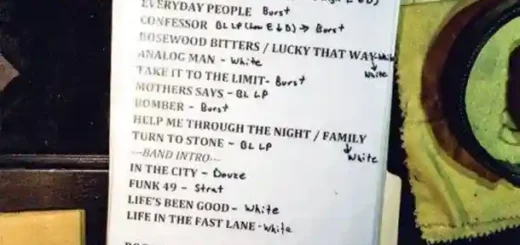 EVERYDAY PEOPLE Burst
CONFESSOR BL LP (Low E & D) → Burst
ROSEWOOD BITTERS / LUCKY THAT WAY - White
ANALOG MAN - White
White
TAKE IT TO THE LIMIT - Burst
MOTHERS SAYS - BL LP
BOMBER - Burst
HELP ME THROUGH THE NIGHT / FAMILY
White
TURN TO STONE - BL LP
---BAND INTRO---
IN THE CITY - Douze
FUNK 49 - Strat
LIFE'S BEEN GOOD - White
LIFE IN THE FAST LANE - White